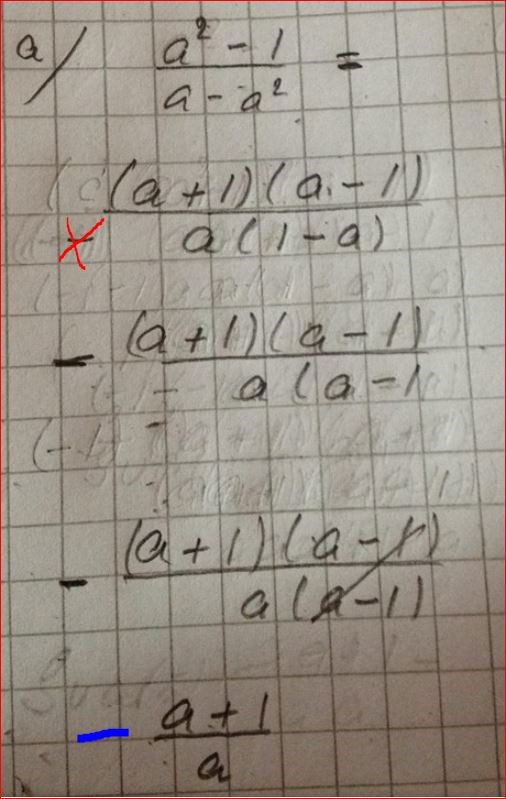 a/ (a² - 1)/(a - a²) =
- (a + 1)(a - 1)/a(1 - a)
- (a + 1)(a - 1)/a(a - 1
- (a + 1)(a - 1)/a(a - 1)
- (a + 1)/a